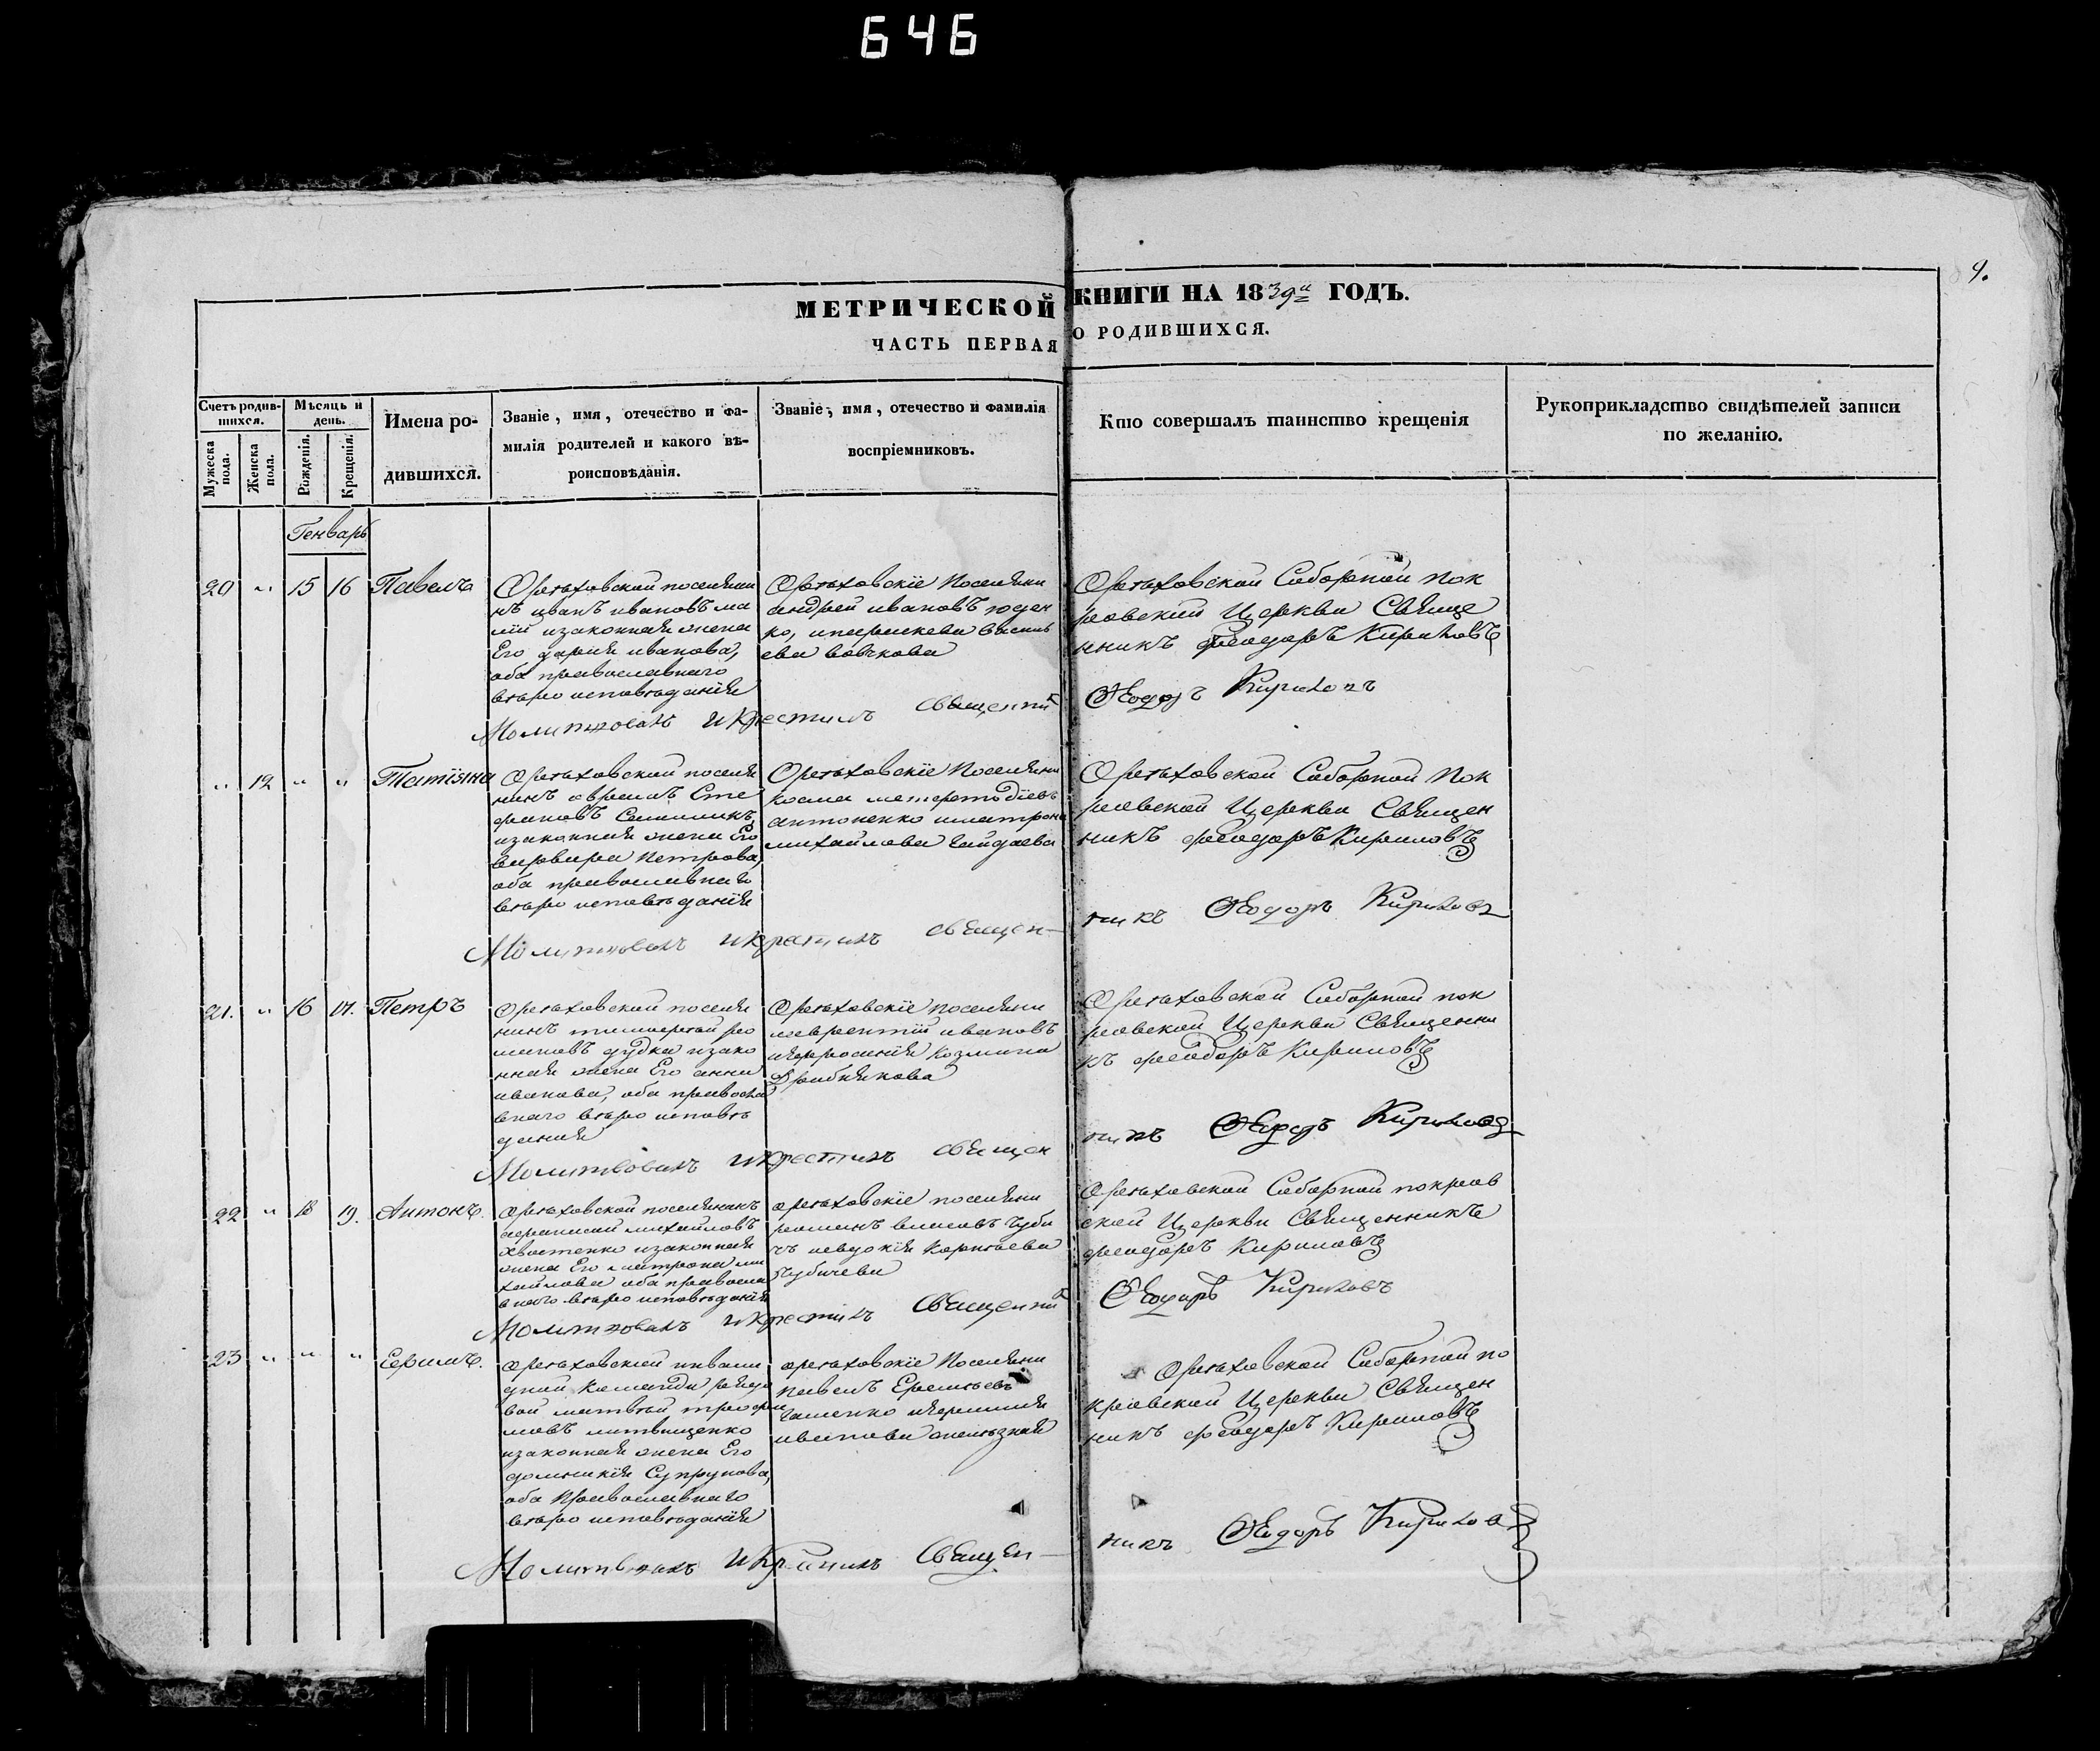 646
9.
МЕТРИЧЕСКОЙ КНИГИ НА 1839й ГОДЪ.
ЧАСТЬ ПЕРВАЯ О РОДИВШИХСЯ.
Счетъ родив-
шихся.
Мужеска пола.
Женска пола.
Мѣсяць и
день.
Рожденія.
Крещенія.
Имена ро-
дившихся.
Званіе, имя, отечество и фа-
милія родителей и какого вѣ-
роисповѣданія.
Званіе, имя, отечество и фамилія
воспріемниковъ.
Кто совершалъ таинство крещенія
Рукоприкладство свидѣтелей записи
по желанію.
Генварь
20 " 15 16 Павелъ
Орѣховской поселяни
нъ иванъ ивановъ ма
лій изаконная жена
Его дарія иванова,
оба православнаго
вѣроисповѣданія
Орѣховскіе Поселяни
андрей ивановъ
ко, ипараскева василь
ева вовчкова
Орѣховской Соборной пок
ровской Церкви Свяще
нникъ феодоръ Кириловъ
Молитвовалъ икрестилъ священникъ Ѳеодоръ Кириловъ
" 12 " " Татіяна
Орѣховской поселя
нинъ аврамъ Сте
фановъ
изаконная жена Его
варвара Петрова,
оба православнаго
вѣроисповѣданія
Орѣховскіе Поселяни
косма
антоненко иматрона
михайлова гайдаева
Орѣховской Соборной пок
ровской Церкви Священ
никъ феодоръ Кириловъ
Молитвовалъ икрестилъ священ-
никъ Ѳеодоръ Кириловъ
21. " 16 17. Петръ
Орѣховской поселя
нинъ тимофей ро
мановъ дудка изако
нная жена Его анна
иванова, оба правосла
внаго вѣроисповѣ
данія
Орѣховскіе поселяни
лаврентій ивановъ
иефросинія козмина
Дрибнякова
Орѣховской Соборной пок
ровской Церкви Священни
къ феодоръ Кириловъ
Молитвовалъ икрестилъ священ
никъ Ѳеодоръ Кириловъ
22 " 18 19. Антонъ.
Орѣховской поселянинъ
афанасий михайловъ
Хвостенко изаконная
жена Его матрона ми
хайлова оба правосла
внаго вѣроисповѣданія
орѣховскіе поселяни
романъ власовъ чуби
чъ иевдокія Корнѣева
чубичева
Орѣховской Соборной покров
ской Церкви Священникъ
феодоръ Кириловъ
Молитвовалъ икрестилъ Священникъ Ѳеодоръ Кириловъ
23 " " " Ефимъ.
орѣховской инвали
дной команды рядо
вой матвѣй трофи
мовъ литвищенко
изаконная жена Его
домникія Супрунова,
оба Православнаго
вѣроисповѣданія
орѣховскіе Поселяни
павелъ
ивнова
Орѣховской Соборной по
кровской Церкви Священ
никъ феодоръ Кириловъ
Молитвовалъ икрестилъ Священ-
никъ Ѳеодоръ Кириловъ